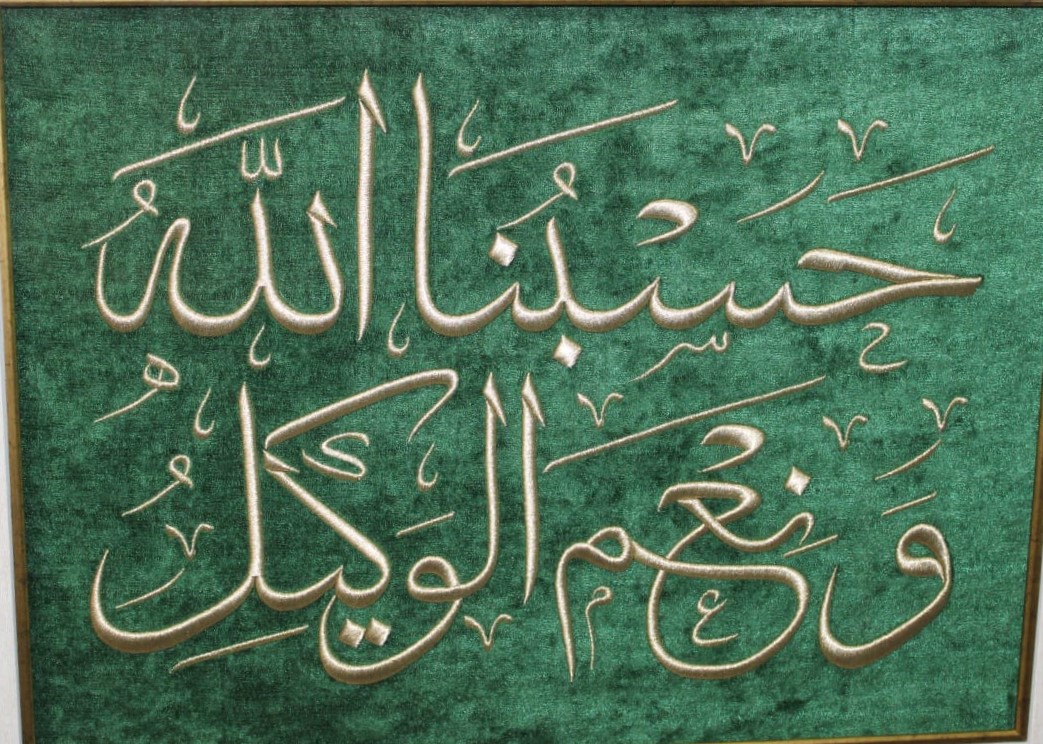 حَسْبُنَا اللّٰهُ
وَنِعْمَ الوَكِيلُ